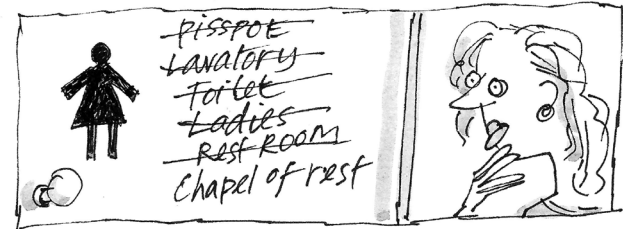 pisspot
Lavatory
Toilet
Ladies
REST ROOM
Chapel of rest